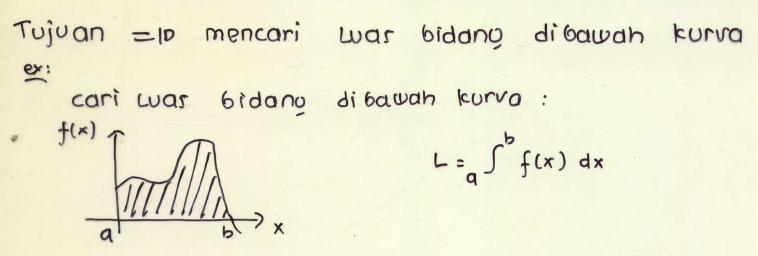 Tujuan => mencari luas bidang dibawah kurva
ex:
cari luas bidang dibawah kurva :
f(x)
L = a∫b f(x) dx
a b x